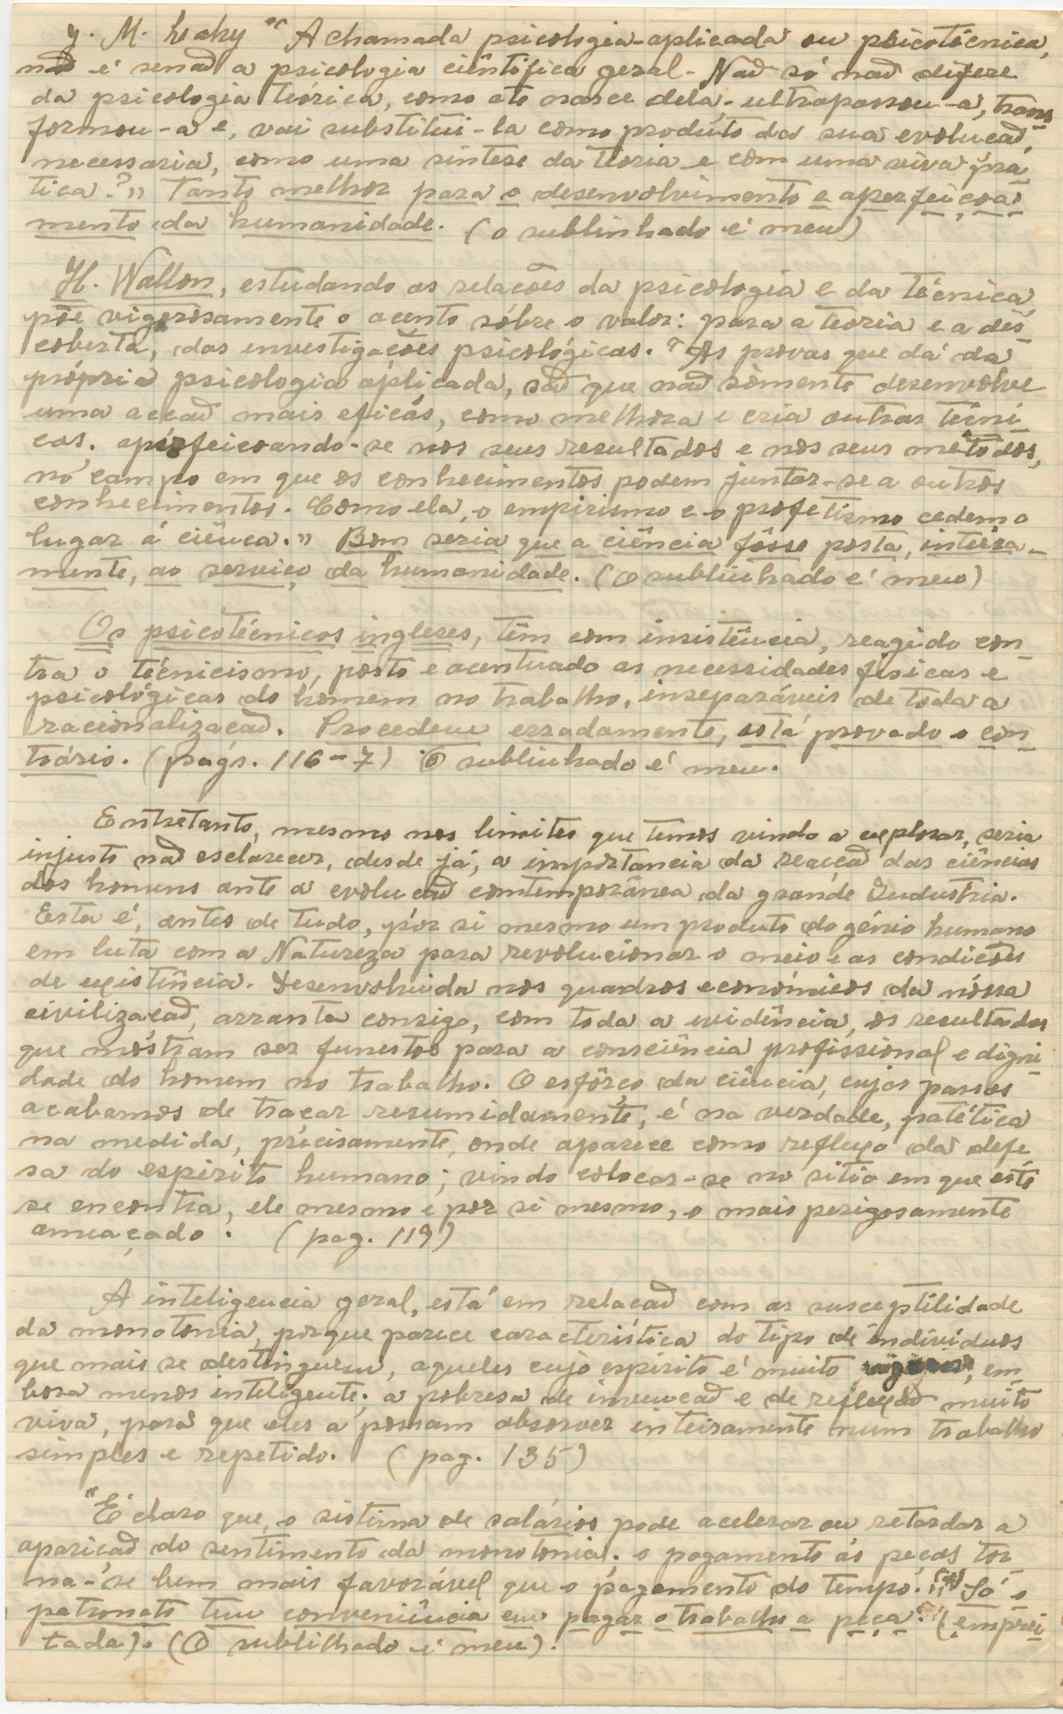 y. M. Lahy "A chamada psicologia-aplicada ou psicotécnica,
não é senão a psicologia ciêntifica geral. Não só não difere
da psicologia teórica, como até nasce dela - ultrapassou-a, trans
formou-a e, vai substitui-la como produto da sua evolução
necessaria, como uma sintese da teoria e com uma viva prá
tica?" Tanto melhor para o desenvolvimento e aperfeiçoa
mento da humanidade. (o sublinhado é meu)
H. Wallon, estudando as relacões da psicologia e da técnica
põe vigorosamente o acento sôbre o valor: para a teoria e a des
coberta, das investigações psicológicas. "As provas que dá da
própria psicologia aplicada, são que não sòmente desenvolve
uma accão mais eficás, como melhora e cria outras técni
cas. aperfeicoando-se nos seus resultados e nos seus metodos,
no campo em que os conhecimentos podem juntar-se a outros
conhecimentos. Como ela, o empirismo e o profetismo cedem o
lugar á ciênca." Bom seria que a ciência fôsse posta, inteira-
mente, ao serviço da humanidade. (O sublinhado é meu)
Os psicotécnicos ingleses, têm com insistência, reagido con-
tra o técnicismo, posto e acentuado as necessidades fisicas e
psicológicas do homem no trabalho, inseparáveis de toda a
racionalizacão. Procedem erradamente, está provado o con-
trário. (págs. 116-7) O sublinhado é meu.
Entretanto, mesmo nos limites que temos vindo a explorar, seria
injusto não esclarecer, desde já, a importancia da reaccão das ciências
dos homens ante a evolucão contemporânea da grande Industria.
Esta é, antes de tudo, por si mesmo um produto do génio humano
em luta com a Natureza para revolucionar o meio e as condicões
de existência. Desenvolvida nos quadros económicos da nóssa
civilizacão, arrasta consigo, com toda a evidência, os resultados
que móstram ser funestos para a consciência profissional e digni-
dade do homem no trabalho. O esfôrço da ciência, cujos passos
acabamos de traçar resumidamente, é na verdade, patética
na medida, précisamente, onde aparece como reflexo da defe
sa do espirito humano; vindo colocar-se no sitio em que este
se encontra, ele mesmo e por si mesmo, o mais perigosamente
ameaçado. (pag. 119)
A inteligencia geral, está em relacão com as susceptilidade
da monotonia, porque parece caracteristica do tipo de individuos
que mais se destinguem, aqueles cujo espirito é muito em
bora menos inteligente; a pobresa de invencão e de reflexão muito
viva, para que eles a possam absorver enteiramente num trabalho
simples e repetido. (pag. 135)
"É claro que o sistema de salários pode acelerar ou retardar a
aparicão do sentimento da monotonia. o pagamento ás peças tor
na-se bem mais favorável que o págamento do tempo." Só o
patronato tem conveniência em pagar o trabalho a peça. (emprei
tada). (O sublilhado é meu).